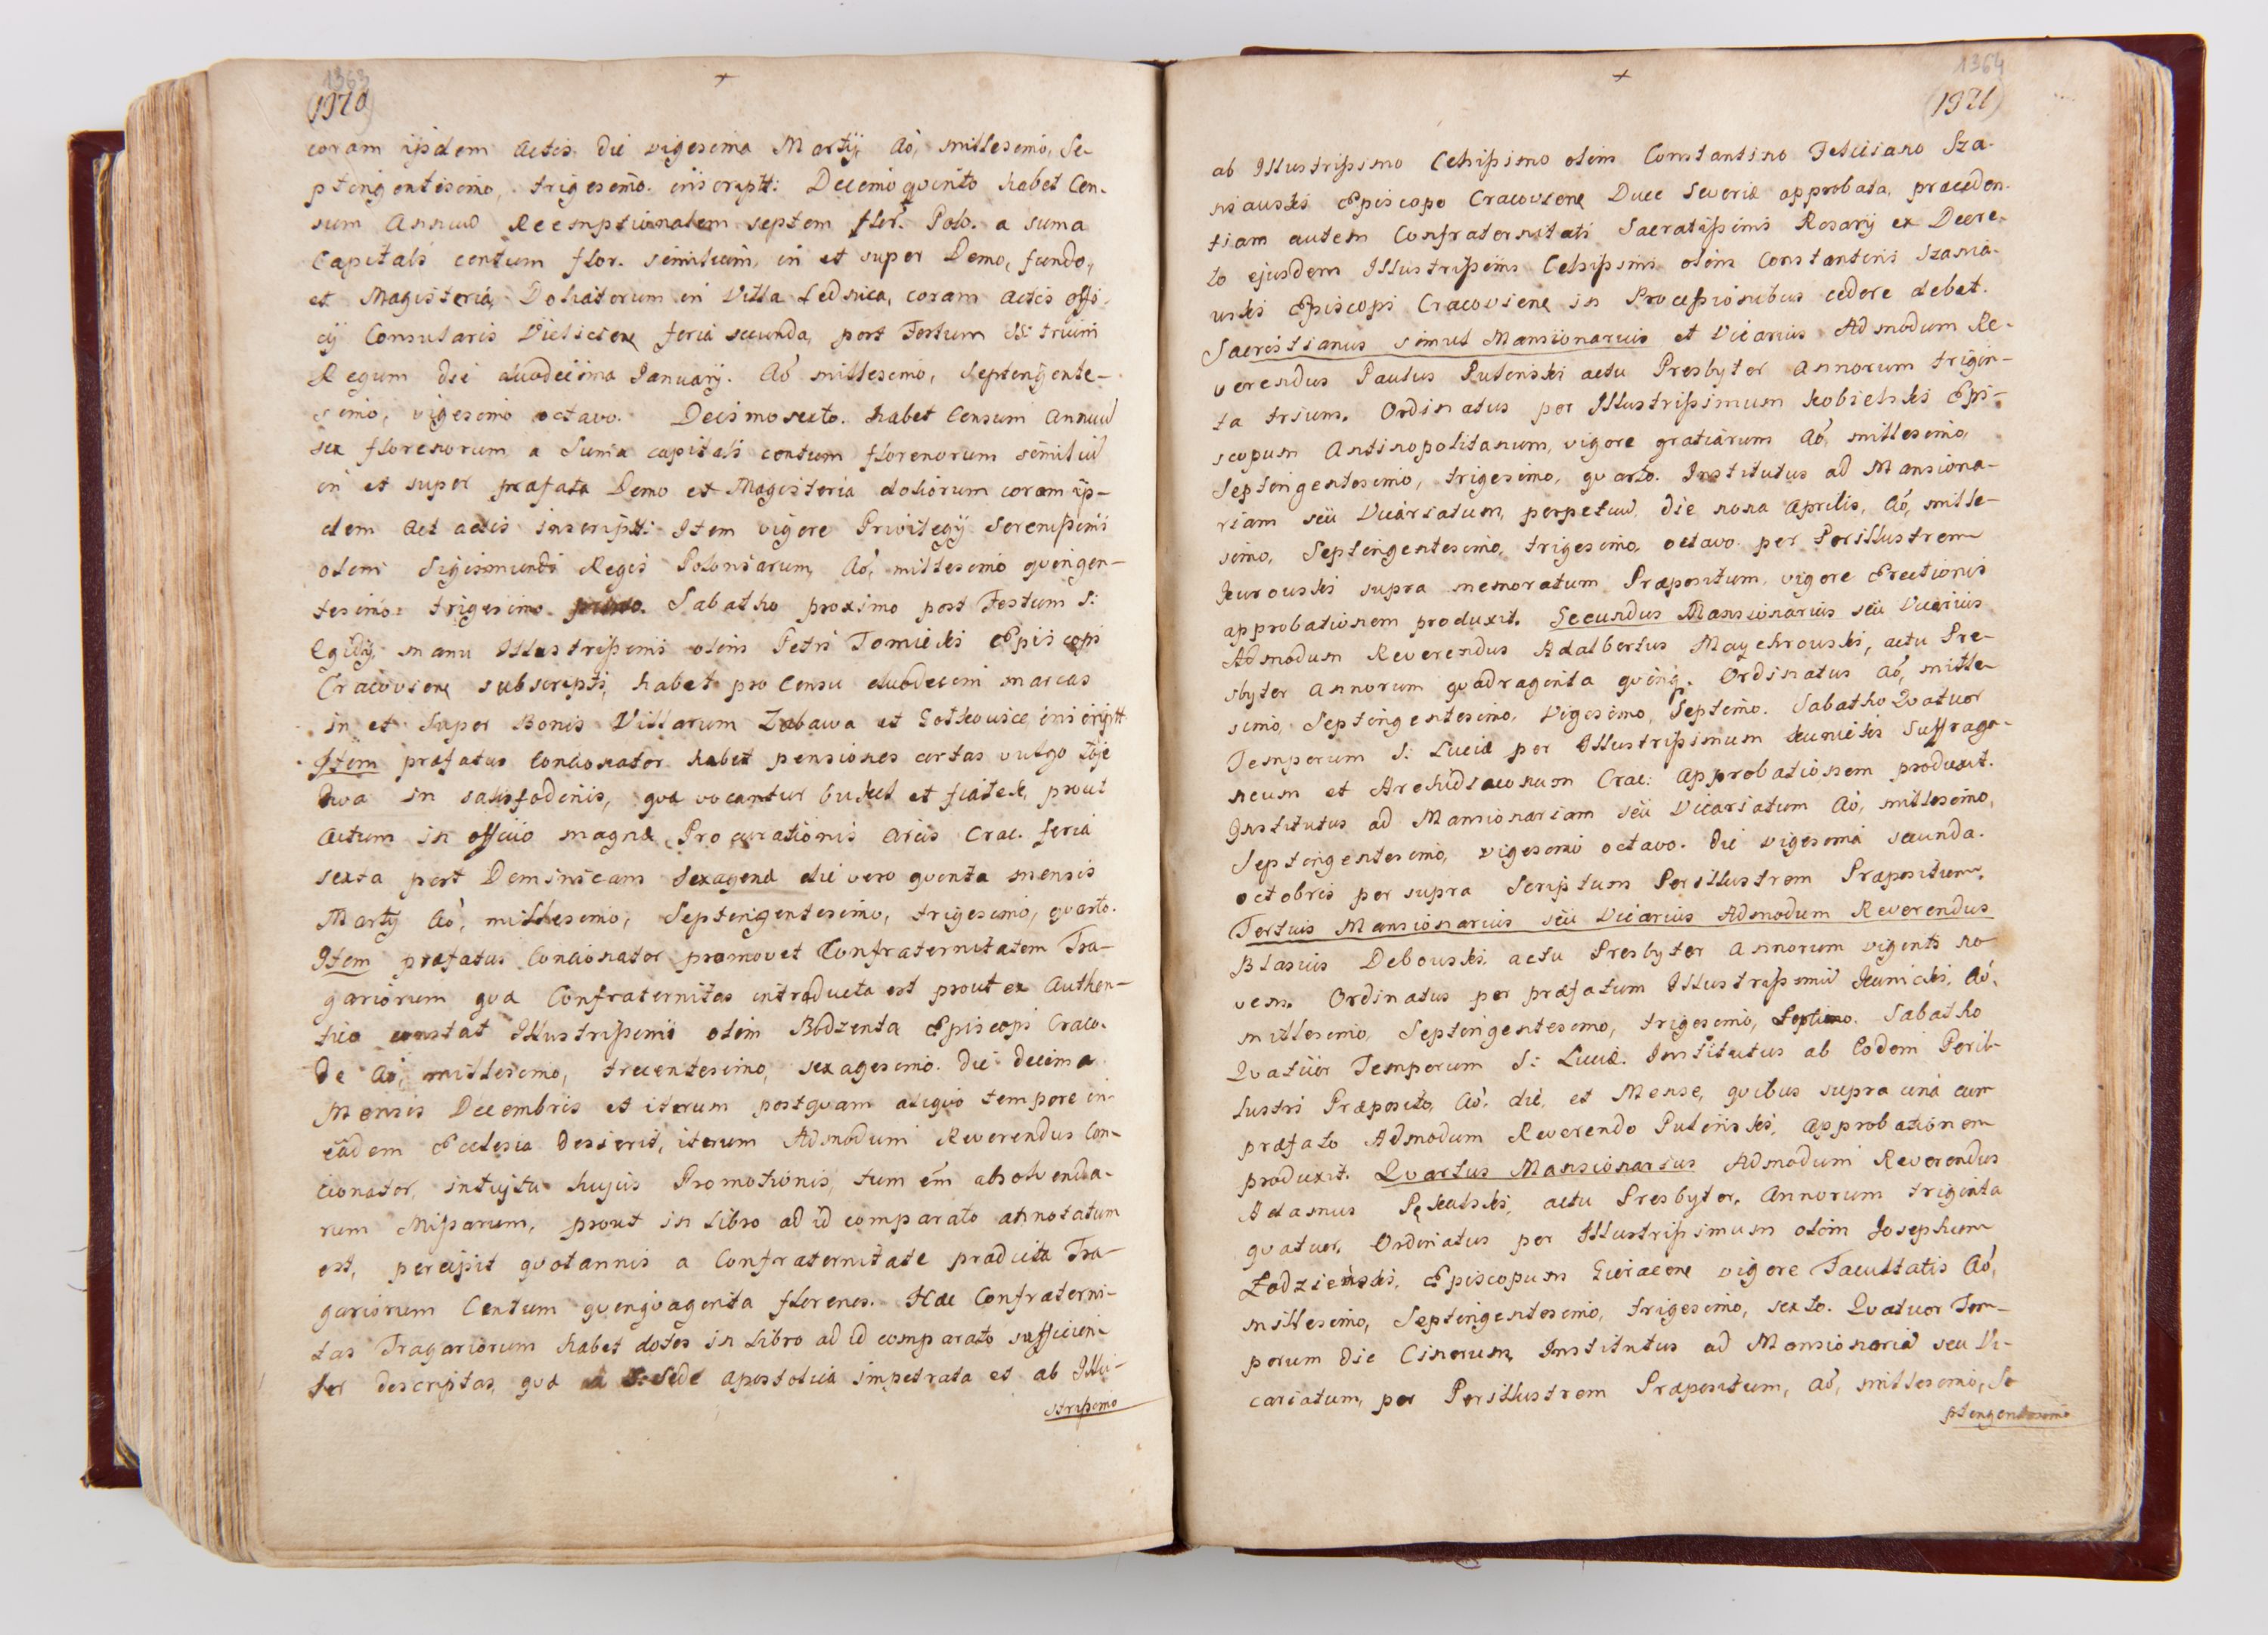 1363
(1370)
+
coram ijsdem Actis die vigesima Martij Aò, millesimo, Se-
ptingentesimo, trigesimo. inscript: Decimo qvinto habet Cen-
sum Annuū Reemptionalem septem flor. Polo. a suma
Capitali centum flor. similium, in et super Domo, fundo,
et Magisteria Doliatorum in Villa Lednica, coram actis offi-
cij Consularis Vieliciens feria secunda, post Festum SS: trium
Regum die duodecima Januarij. Aò millesimo, Septingente-
simo, vigesimo octavo. Decimo sexto. habet Censum Annuū
sex florenorum a Suma capitali centum florenorum similiū
in et super præfata Domo et Magisteria doliorum coram iis-
dem Act actis inscript: Item vigore Privilegij Serenissimi
olim Sigismundi Regis Poloniarum, Aò, millesimo qvingen-
tesimo: trigesimo primo. Sabatho proximo post Festum S:
Egidij, manu Illustrissimi olim Petri Tomicki Episcopi
Cracoviens subscripti, habet pro Censu duodecim marcas
in et super Bonis Villarum Zabawa et Gotkovice inscript.
Item præfatus Concionator habet pensiones certas vulgo zoje
dwa in salisfodinis, qvæ vocantur buket et fiatek, prout
Actum in officio magnæ Procurationis Arcis Crac. feria
sexta post Dominicam Sexagenæ die vero qvinta mensis
Martij Aò, millesimo, Septingentesimo, trigesimo, qvarto.
Item præfatus Concionator promovet Confraternitatem Tra-
gariorum qvæ Confraternitas introducta est prout ex Authen-
tico constat Illustrissimi olim Bodzenta Episcopi Craco.
De Aò, millesimo, trecentesimo, sexagesimo. Die decima
Mensis Decembris et iterum postqvam aliqvo tempore in
eâdem Ecclesia desierit, iterum Admodum Reverendus Con-
cionator, intujtu hujus Promotionis, tum ēm absolvenda-
rum Missarum, prout in Libro ad id comparato annotatum
est, percipit qvotannis a Confraternitate prædicta Tra-
gariorum Centum qvinqvaginta florenos. Hæc Confraterni-
tas Tragariorum habet dotes in Libro ad id comparato sufficien-
ter descriptas, qvæ a S: Sede Apostolica impetrata et ab Illu-
strissimo
1364
(1371)
+
ab Illustrissimo Celsissimo olim Constantino Feliciano Sza-
niauski Episcopo Cracoviens Duce Severiæ approbata, præceden-
tiam autem Confraternitati Sacratissimi Rosarij ex Decre-
to ejusdem Illustrissimi Celsissimi olim Constantini Szania-
uski Episcopi Cracoviens in Processionibus cedere debet.
Sacristianus simul Mansionarius et Vicarius Admodum Re-
verendus Paulus Putenski actu Presbyter Annorum trigin-
ta trium. Ordinatus per Illustrissimum Kobielski Epi-
scopum Antinopolitanum, vigore gratiarum Aò, millesimo,
Septingentesimo, trigesimo, qvarto. Institutus ad Mansiona-
riam seü Vicariatum, perpetuū, die nona Aprilis, Aò, mille-
simo, Septingentesimo, trigesimo, octavo. per Perillustrem
Kurouski supra memoratum Præpositum, vigore Erectionis
approbationem produxit. Secundus Mansionarius seü Vicarius
Admodum Reverendus Adalbertus Maychrouski, actu Pre-
sbyter Annorum qvadraginta qvinq. Ordinatus Aò, mille-
simo, Septingentesimo, Vigesimo, Septimo. Sabatho Qvatuor
Temporum S: Luciæ per Illustrissimum Kunicki Suffraga-
neum et Archidiaconum Crac: Approbationem produxit.
Institutus ad Mansionariam seü Vicariatum Aò, millesimo,
Septingentesimo, vigesimo octavo. die vigesima secunda.
Octobris per supra Scriptum Perillustrem Præpositum.
Tertius Mansionarius seü Vicarius Admodum Reverendus
Blasius Debouski actu Presbyter Annorum viginti no-
vem. Ordinatus per præfatum Illustrissimū Kunicki, Aò,
millesimo, Septingentesimo, trigesimo, Septimo. Sabatho
Qvatüor Temporum S: Luciæ. Institutus ab Eodem Peril-
lustri Præposito, Aò. die, et Mense, qvibus supra unà cum
præfato Admodum Reverendo Putenski, Approbationem
produxit. Qvartus Mansionarius Admodum Reverendus
Adamus Pękalski, actu Presbyter, Annorum triginta
qvatuor, Ordinatus per Illustrissimum olim Josephum
Łodzieński, Episcopum Guracene vigore Facultatis Aò,
millesimo, Septingentesimo, trigesimo, sexto. Qvatuor Tem-
porum die Cinerum, Institutus ad Mansionariā seu Vi-
cariatum, per Perillustrem Præpositum, Aò, millesimo, Se-
ptingentesimo